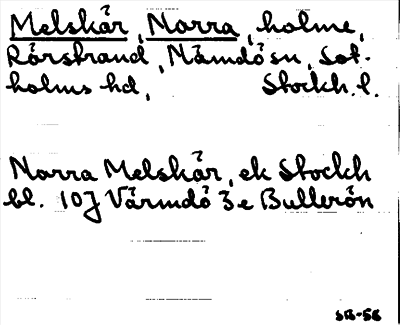 Melskär, Norra, holme,
Rörstrand, Nämdö sn, Sot-
holms hd, Stockh. l.
Norra Melskär, ek Stockh
bl. 10J Värmdö 3e Bullerön
SB-56